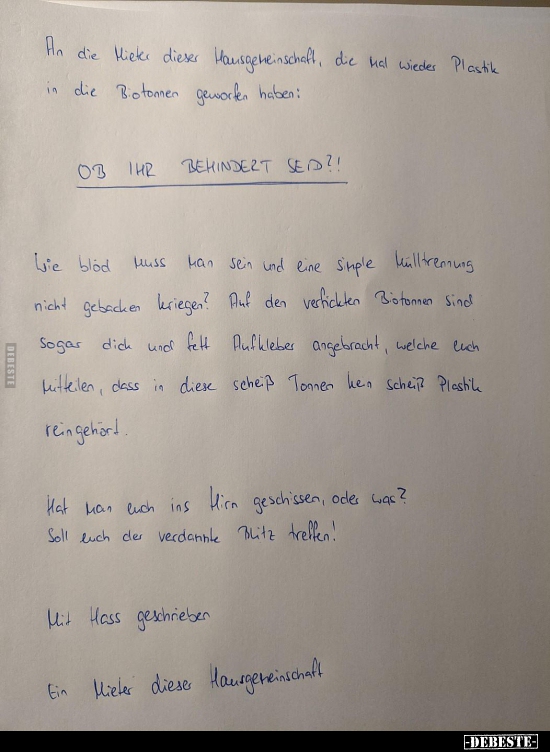 An die Mieter dieser Hausgemeinschaft, die mal wieder Plastik
in die Biotonnen geworfen haben:
OB IHR BEHINDERT SEID?!
Wie blöd muss man sein und eine simple Mülltrennung
nicht gebacken kriegen? Auf den verfickten Biotonnen sind
sogar dick und fett Aufkleber angebracht, welche euch
mitteilen, dass in diese scheiß Tonnen kein scheiß Plastik
reingehört.
Hat man euch ins Hirn geschissen, oder was?
Soll euch der verdammte Blitz treffen!
Mit Hass geschrieben
Ein Mieter dieser Hausgemeinschaft
DEBESTE
-DEBESTE-